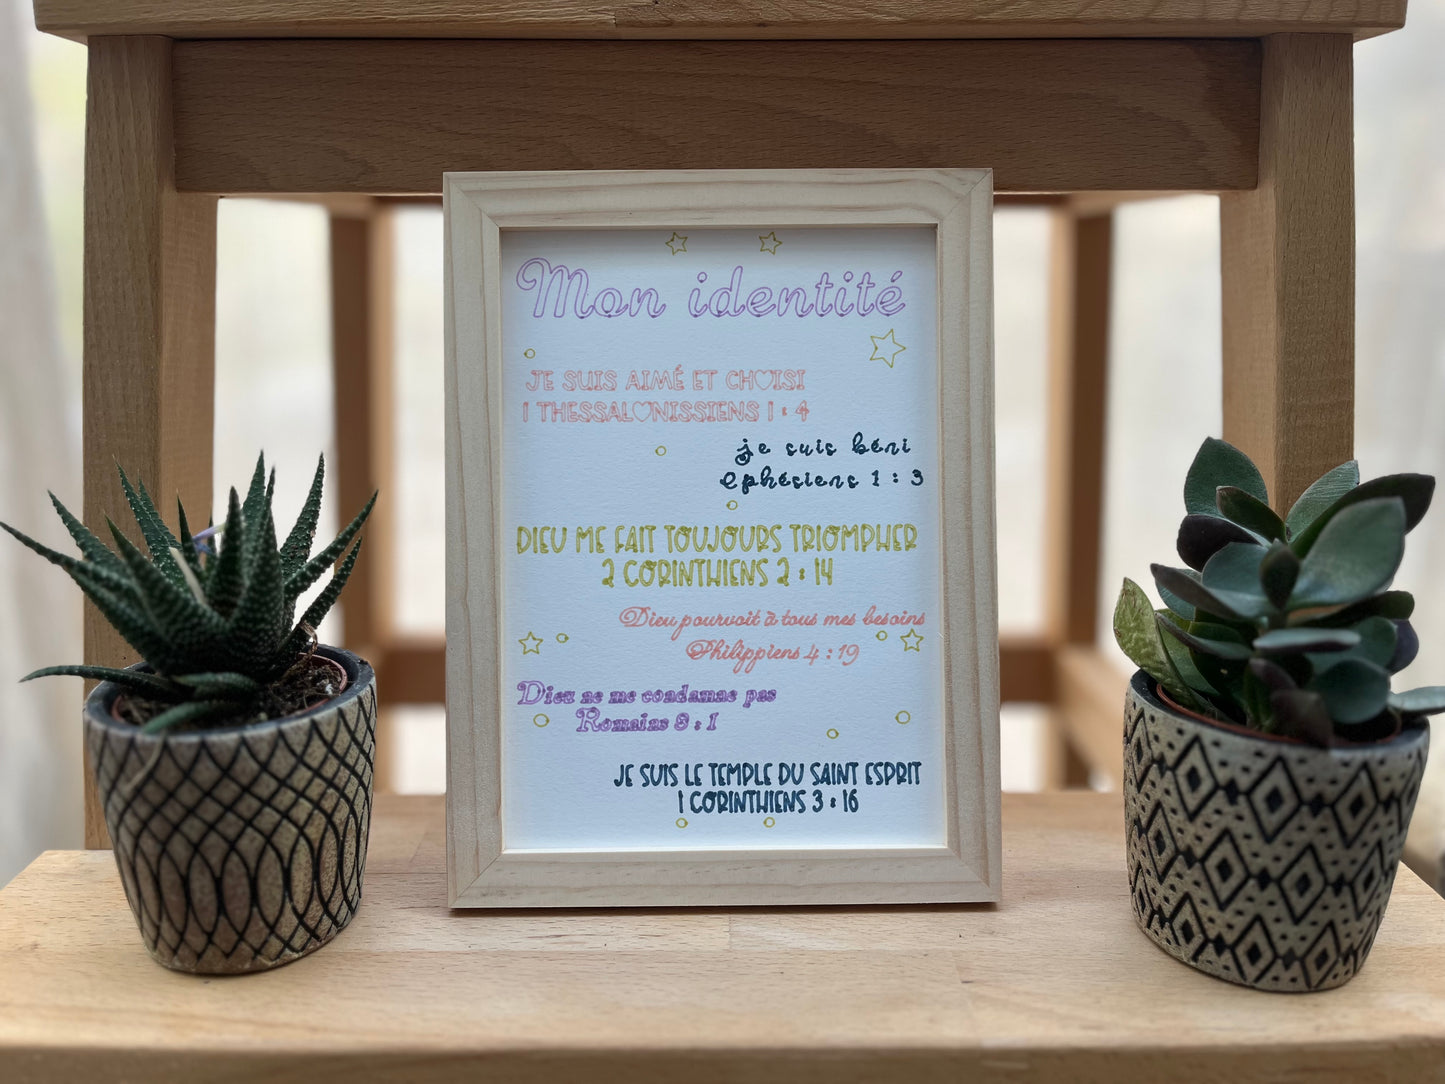 Mon identité
JE SUIS AIMÉ ET CHOISI
1 THESSALONISSIENS 1 : 4
je suis béni
ephésiens 1 : 3
DIEU ME FAIT TOUJOURS TRIOMPHER
2 CORINTHIENS 2 : 14
Dieu pourvoit à tous mes besoins
Philippiens 4 : 19
Dieu ne me condamne pas
Romains 8 : 1
JE SUIS LE TEMPLE DU SAINT ESPRIT
1 CORINTHIENS 3 : 16